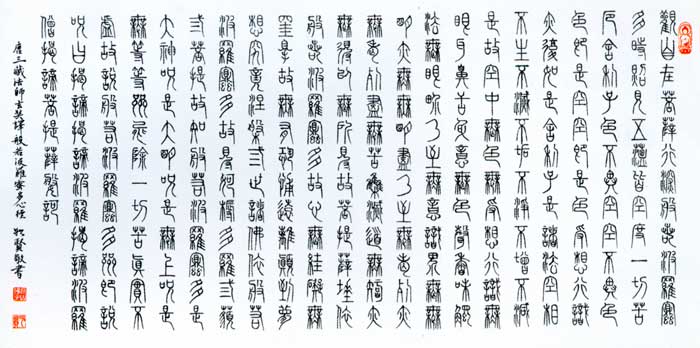 觀自在菩薩行深般若波羅蜜
多時照見五蘊皆空度一切苦
厄舍利子色不異空空不異色
色即是空空即是色受想行識
亦復如是舍利子是諸法空相
不生不滅不垢不淨不增不減
是故空中無色無受想行識無
眼耳鼻舌身意無色聲香味觸
法無眼界乃至無意識界無無
明亦無無明盡乃至無老死亦
無老死盡無苦集滅道無智亦
無得以無所得故菩提薩埵依
般若波羅蜜多故心無罣礙無
罣礙故無有恐怖遠離顛倒夢
想究竟涅槃三世諸佛依般若
波羅蜜多故得阿耨多羅三藐
三菩提故知般若波羅蜜多是
大神咒是大明咒是無上咒是
無等等咒能除一切苦真實不
虛故說般若波羅蜜多咒即說
咒曰揭諦揭諦波羅揭諦波羅
僧揭諦菩提薩婆訶
唐三藏法師玄奘譯般若波羅蜜多心經 賢敬書